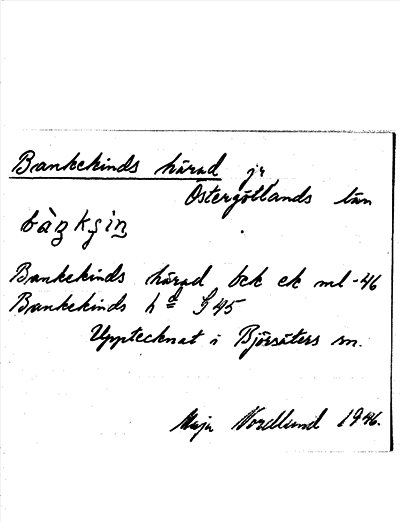 Bankekinds härad jr
Östergötlands län
Bankekinds härad bek ek ml -46
Bankekinds hd G 45
Upptecknat i Björsäters sn.
Maja Nordlund 1946.